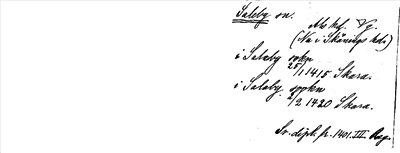 Saleby sn.
Als hd. Vg.
(Nu i Skånings hd.)
i Salaby sokn
25/1 1415 Skara.
i Salaby sokn
2/2 1420 Skara.
Sv. dipl. fr. 1401. III. Reg.